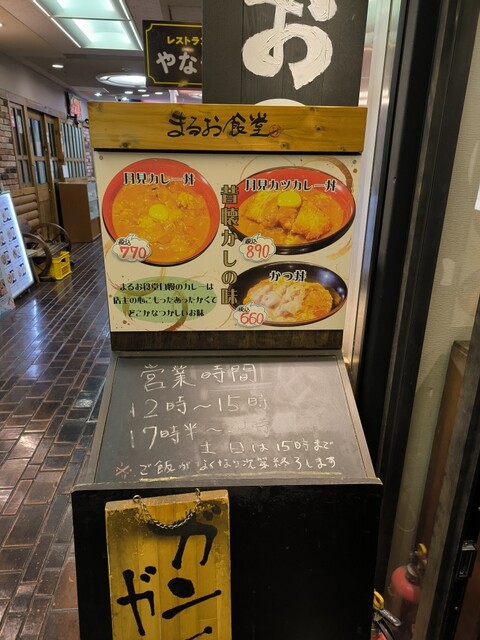 お
レストラン
やな
まるお食堂
月見カレー丼
税込
770
昔懐かしの味
月見カツカレー丼
税込
890
かつ丼
税込
660
まるお食堂自慢のカレーは
店主の心こもったあったかくて
どこかなつかしいお味
営業時間
12時～15時
17時半～
土日は15時まで
※ご飯がなくなり次第終了します
ガンミ
や